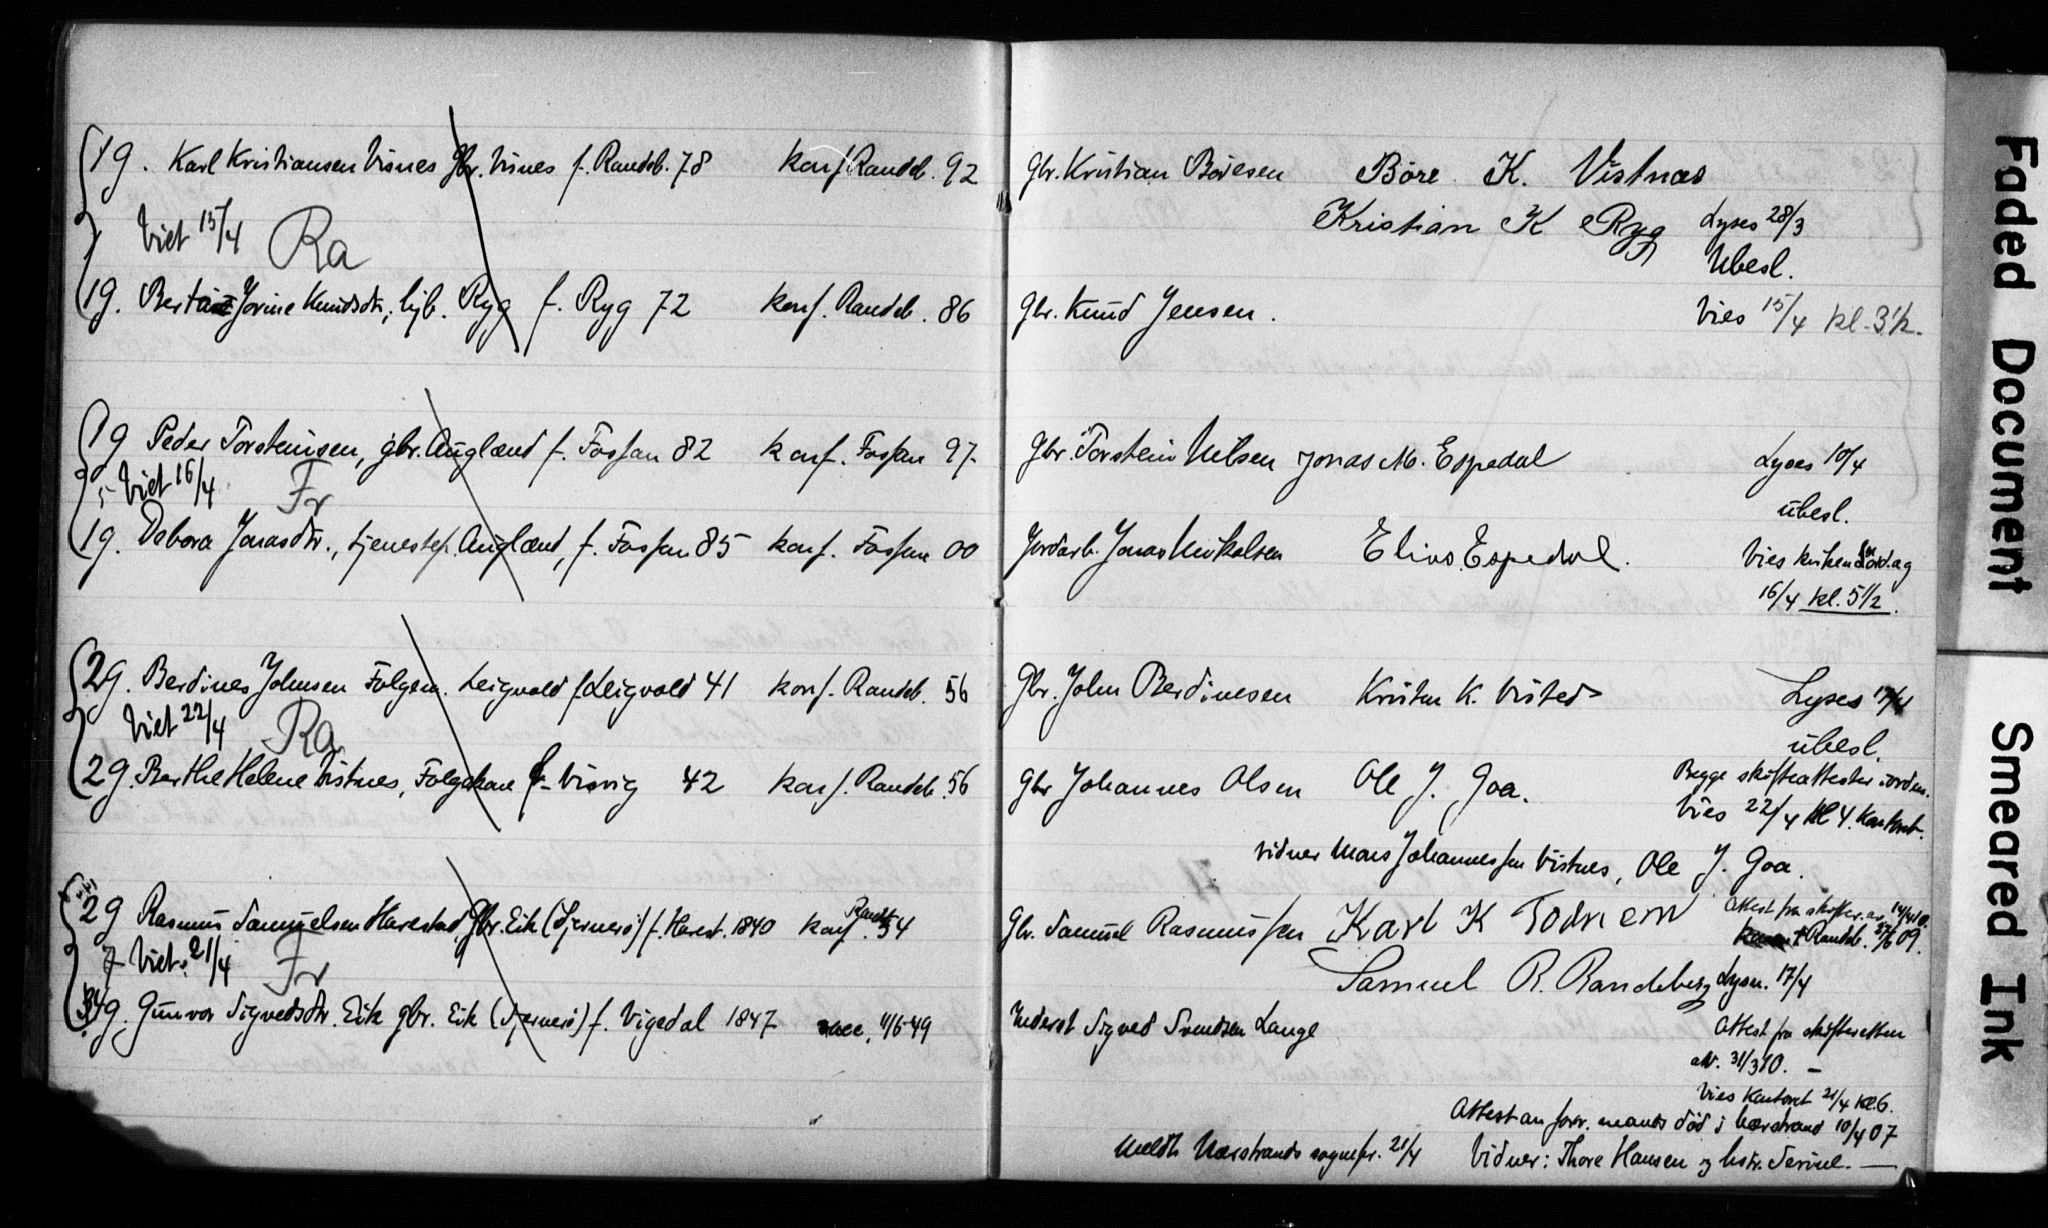 1g. Karl Kristiansen Visnes gbr. Visnes f. Randeb. 78 konf. Randeb. 92 gbr. Kristian Böresen Böre K. Vistnæs
Viet 15/4 Ra Kristian K Ryg Lyses 28/3
Ubesl.
1g. Berta Jorine Knudsdtr., hjb. Ryg f. Ryg 72 konf. Randeb. 86 gbr. Knud Jensen. Vies 15/4 kl. 3½.
1g Peder Torsteinsen, gbr. Auglænd f. Fossan 82 konf. Fossan 97. Gbr. Torstein Nilsen Jonas M. Espedal Lyses 10/4
5 Viet 16/4 Fr ubesl.
1g. Debora Jonasdtr., tjenestep. Auglænd, f. Fossan 85 konf. Fossan 00 Jordarb. Jonas Elias Espedal. Vies kirken
16/4 kl. 5½.
2g. Berdines Johnsen Folgem. Leigvold f. Leigvold 41 konf. Randeb. 56 Gbr. John Berdinesen Kristen K. Visted Lyses 17/4
Viet 22/4 Ra ubesl.
2g. Berthe Helene Vistnes, Folgekone f. Visvig 42 konf. Randeb. 56 Gbr Johannes Olsen Ole J. Goa. Begge skifteattester i orden.
Vies 22/4 kl 4. Kontoret.
vidner Mons Johannessen Vistnes, Ole J. Goa.
2g Rasmus Samuelsen Harestad, Gbr. Eik (Sjernerö) f. Harest. 1840 konf. Randb. 54 Gbr. Samuel Rasmussen Karl K Todnem Attest fra skifter. av
Randeb. 09.
7 Viet. 21/4 Fr Samuel R. Randeberg Lysn. 17/4
3g. Gunvor Sigvedsdtr. Eik gbr. Eik (Sjernerö) f. Vigedal 1847 vacc. 11/6 49 Inderst Sigved Svendsen Lange Attest fra skifteretten
av. 31/3 10. –
Vies Kontoret 21/4 kl. 6.
Attest an forr. mands död i Nærstrand 10/4 07
Meldt Nærstrands sognepr. 21/4 Vidner: Thore Hansen og hstr. Serine. —
Faded Document
Smeared Ink